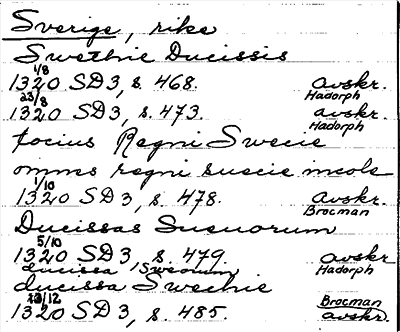 Sverige, rike
Swethie Ducissis
1/8
1320 SD 3, s. 468. avskr.
Hadorph
23/8
1320 SD 3, s. 473. avskr.
Hadorph
tocius Regni Swecie
omnes regni suecie incole
1/10
1320 SD 3, s. 478. avskr.
Brocman
Ducissas Sueuorum
5/10
1320 SD 3, s. 479. avskr
Hadorph
ducissa Sweorum
ducissa Swechie
23/12 Brocman
1320 SD 3, s. 485. avskr.